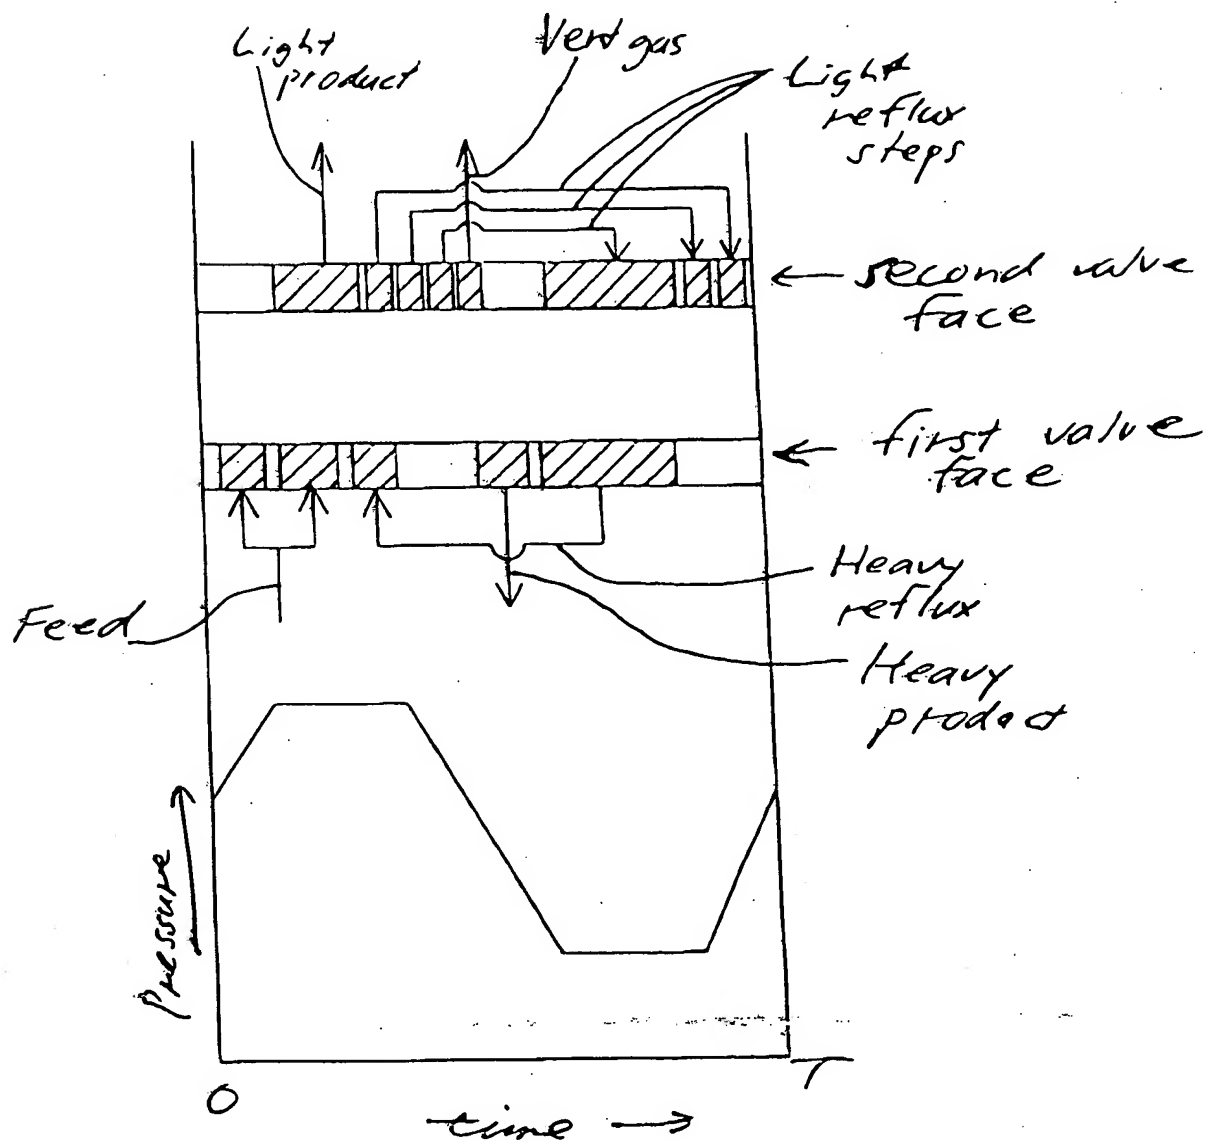 Light
product
Vent gas
Light
reflux
steps
second valve
face
first valve
face
Heavy
reflux
Feed
Heavy
product
Pressure
0
T
time